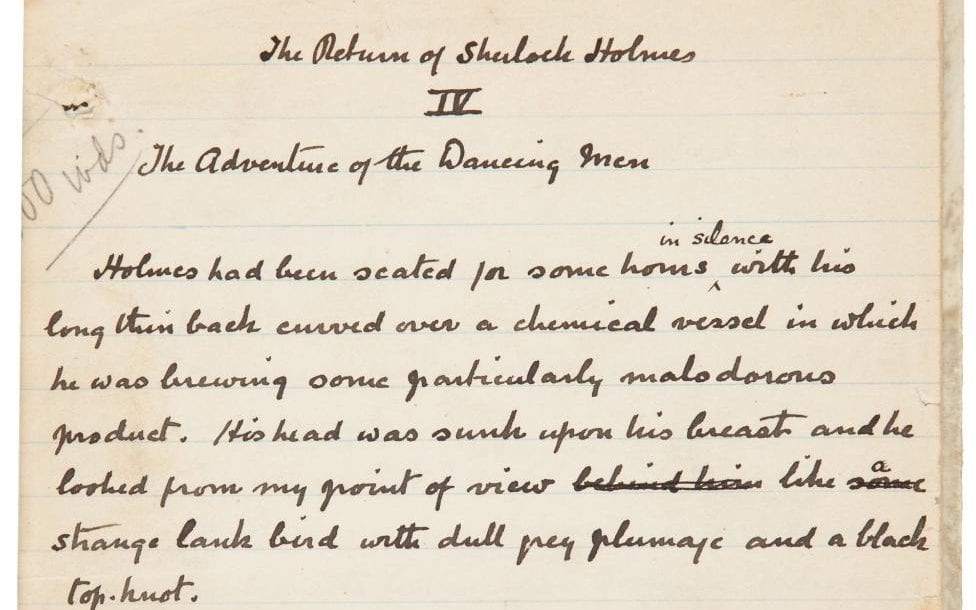 The Return of Sherlock Holmes
IV
The Adventure of the Dancing Men
00 wds.
in silence
Holmes had been seated for some hours ^ with his
long thin back curved over a chemical vessel in which
he was brewing some particularly malodorous
product. His head was sunk upon his breast and he
a
looked from my point of view behind him like some
strange lank bird with dull grey plumage and a black
top-knot.